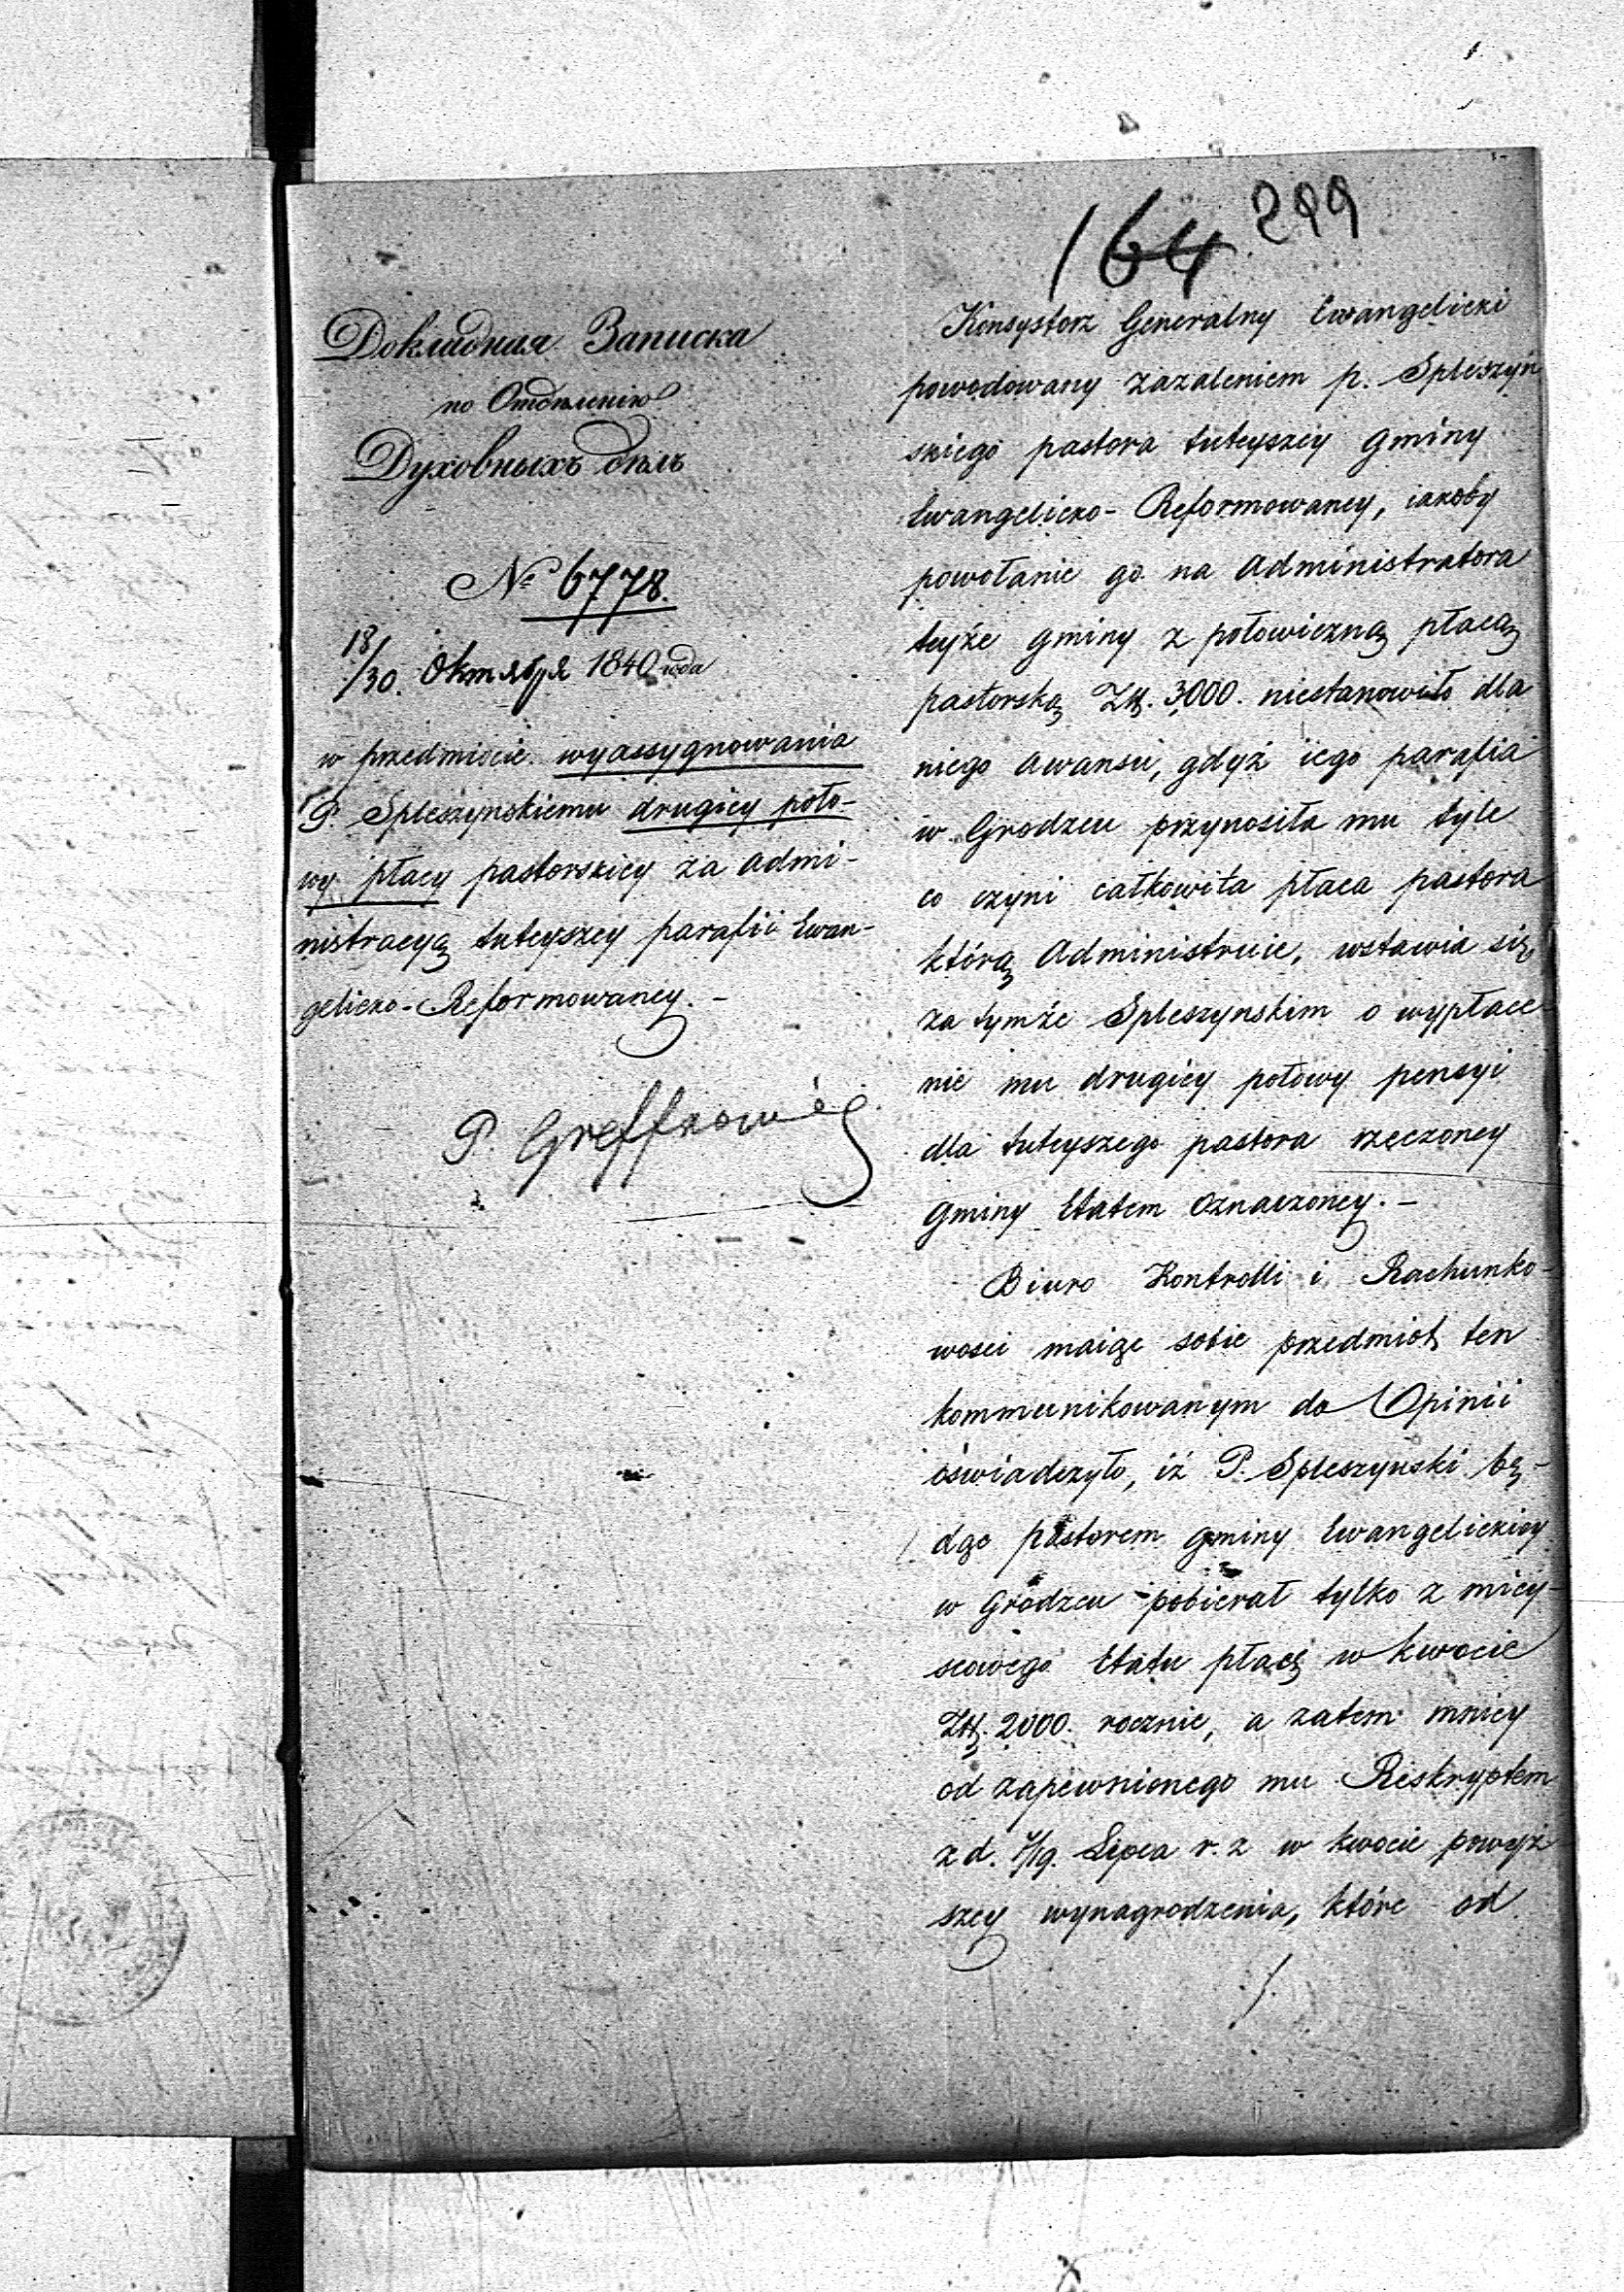 164 299
Докладная Записка
по Отдѣленію
Духовныхъ дѣлъ
№ 6778.
18/30. Октября 1840 года
w przedmiocie wyassygnowania
P. Spleszynskiemu drugiey poło-
wy płacy pastorskiey za admi-
nistracyą tuteyszey parafii Ewan-
gelicko-Reformowaney. –
P.
Konsystorz Generalny Ewangelicki
powodowany zażaleniem p. Spleszyń
skiego pastora tuteyszey gminy
Ewangelicko-Reformowaney, iakoby
powołanie go na Administratora
teyże gminy z połowiczną płacą
pastorską Złł. 3000. niestanowiło dla
niego awansu, gdyż iego parafia
w Grodzcu przynosiła mu tyle
co czyni całkowita płaca pastora
którą Administruie, wstawia się
za tymże Spleszynskim o wypłace
nie mu drugiey połowy pensyi
dla tuteyszego pastora rzeczoney
gminy Etatem oznaczoney. –
Biuro Kontrolli i Rachunko-
wosci maiąc sobie przedmiot ten
kommunikowanym do Opinii
oświadczyło, iż P. Spleszynski bę-
dąc pastorem gminy Ewangelickiey
w Grodzcu pobierał tylko z miey-
scowego Etatu płacę w kwocie
Złł. 2000. rocznie, a zatem mniey
od zapewnionego mu Reskryptem
z d. 7/19. Lipca r. z w kwocie powyż
szey wynagrodzenia, które od
./.